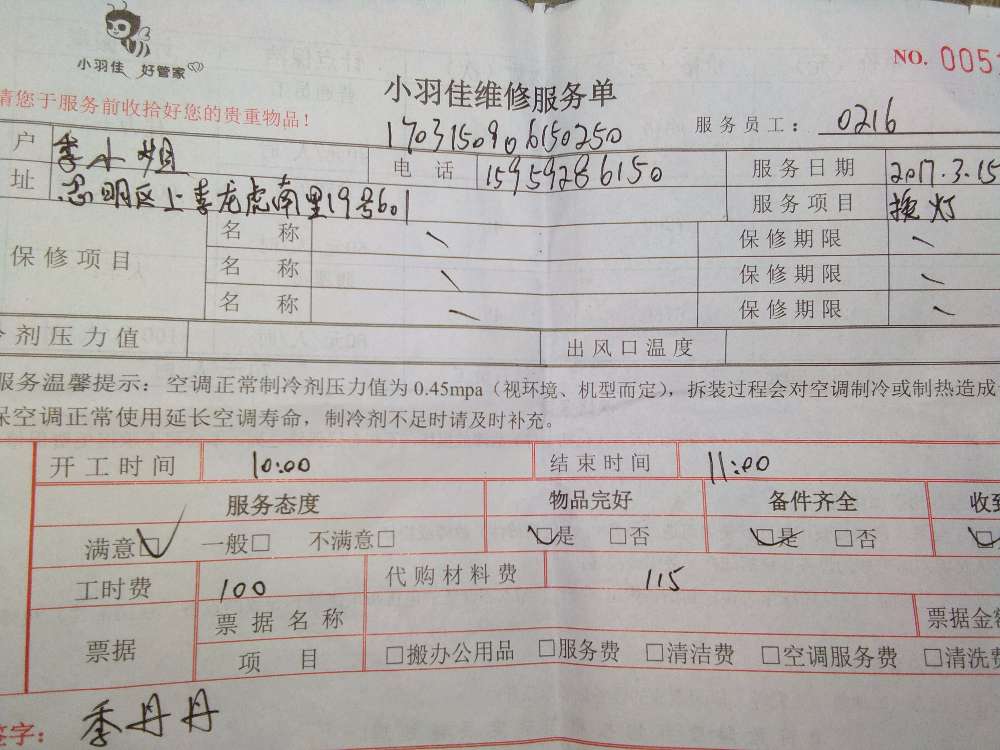 小羽佳 好管家
NO. 005
小羽佳维修服务单
请您于服务前收拾好您的贵重物品！
1703150906150250
服务员工： 0216
户 季小姐 电 话 15959286150 服务日期 2017.3.15
址 思明区上李龙虎南里19号601 服务项目 换灯
保修项目 名 称 保修期限
名 称 保修期限
名 称 保修期限
剂压力值 出风口温度
服务温馨提示：空调正常制冷剂压力值为 0.45mpa（视环境、机型而定），拆装过程会对空调制冷或制热造成
保空调正常使用延长空调寿命，制冷剂不足时请及时补充。
开工时间 10:00 结束时间 11:00
服务态度 物品完好 备件齐全 收到
满意□ 一般□ 不满意□ □是 □否 □是 □否 □
工时费 100 代购材料费 115
票据 票据名称 票据金额
项 目 □搬办公用品 □服务费 □清洁费 □空调服务费 □清洗费
签字： 季丹丹